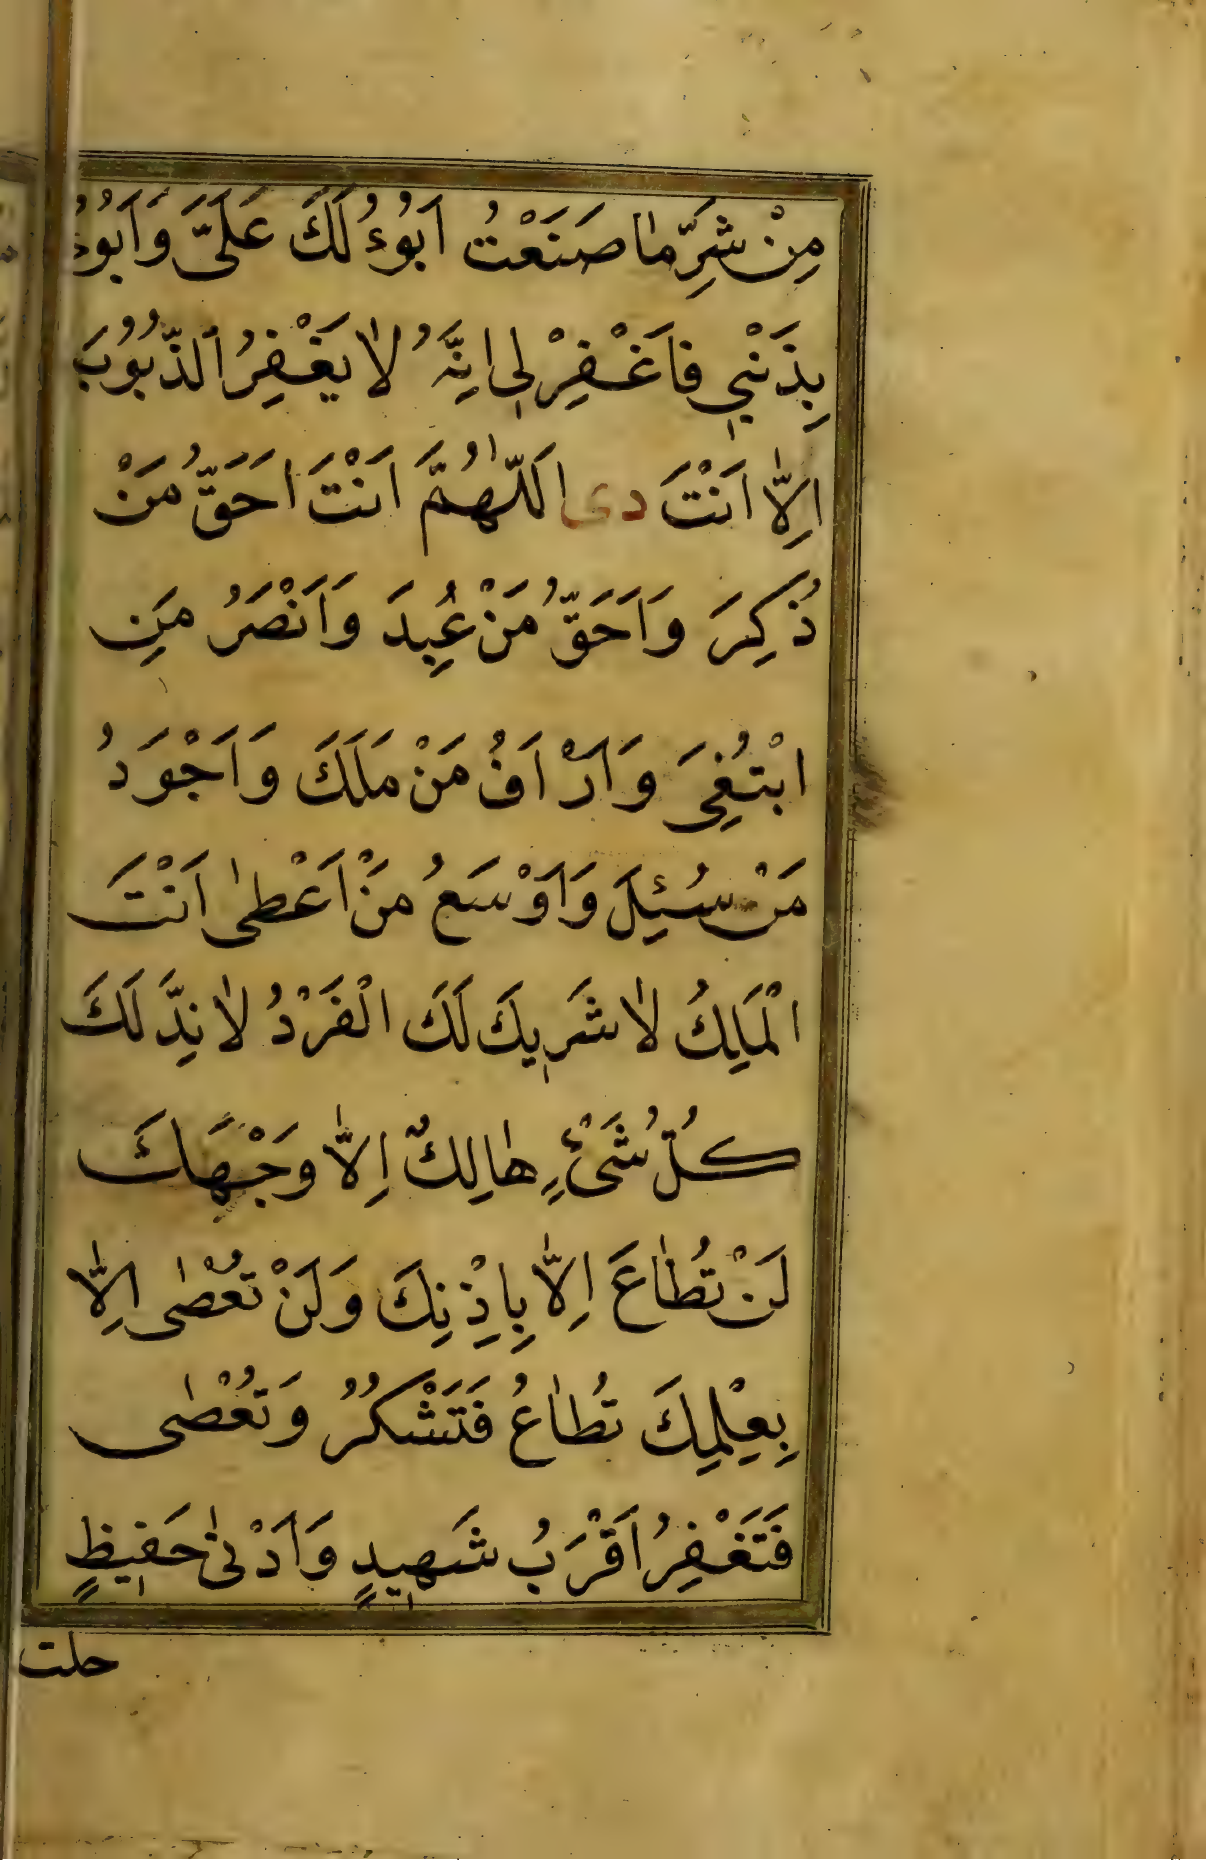 مِنْ شَرِّ مٰا صَنَعْتُ اَبُوْءُ لَكَ عَلَيَّ وَاَبُوْءُ
بِذَنْبٖي فَاغْفِرْلٖى اِنَّهُ لٰا يَغْفِرُ الذُّنُوْبَ
اِلّٰا اَنْتَ دى اَللّٰهُمَّ اَنْتَ اَحَقُّ مَنْ
ذُكِرَ وَاَحَقُّ مَنْ عُبِدَ وَاَنْصَرُ مَنِ
ابْتُغِىَ وَاَرْاَفُ مَنْ مَلَكَ وَاَجْوَدُ
مَنْ سُئِلَ وَاَوْسَعُ مَنْ اَعْطٰى اَنْتَ
الْمَلِكُ لٰا شَرٖيكَ لَكَ الْفَرْدُ لٰا نِدَّ لَكَ
كُلُّ شَىْءٍ هٰالِكٌ اِلّٰا وَجْهَكَ
لَنْ تُطٰاعَ اِلّٰا بِاِذْنِكَ وَلَنْ تُعْصٰى اِلّٰا
بِعِلْمِكَ تُطٰاعُ فَتَشْكُرُ وَتُعْصٰى
فَتَغْفِرُ اَقْرَبُ شَهٖيدٍ وَاَدْنٰى حَفٖيظٍ
حلت